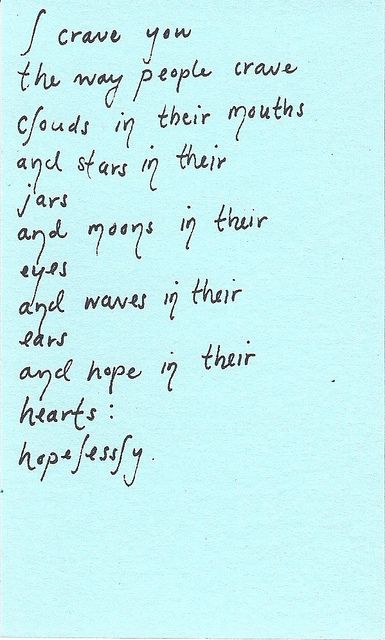 I crave you
the way people crave
clouds in their mouths
and stars in their
jars
and moons in their
eyes
and waves in their
ears
and hope in their
hearts:
hopelessly.